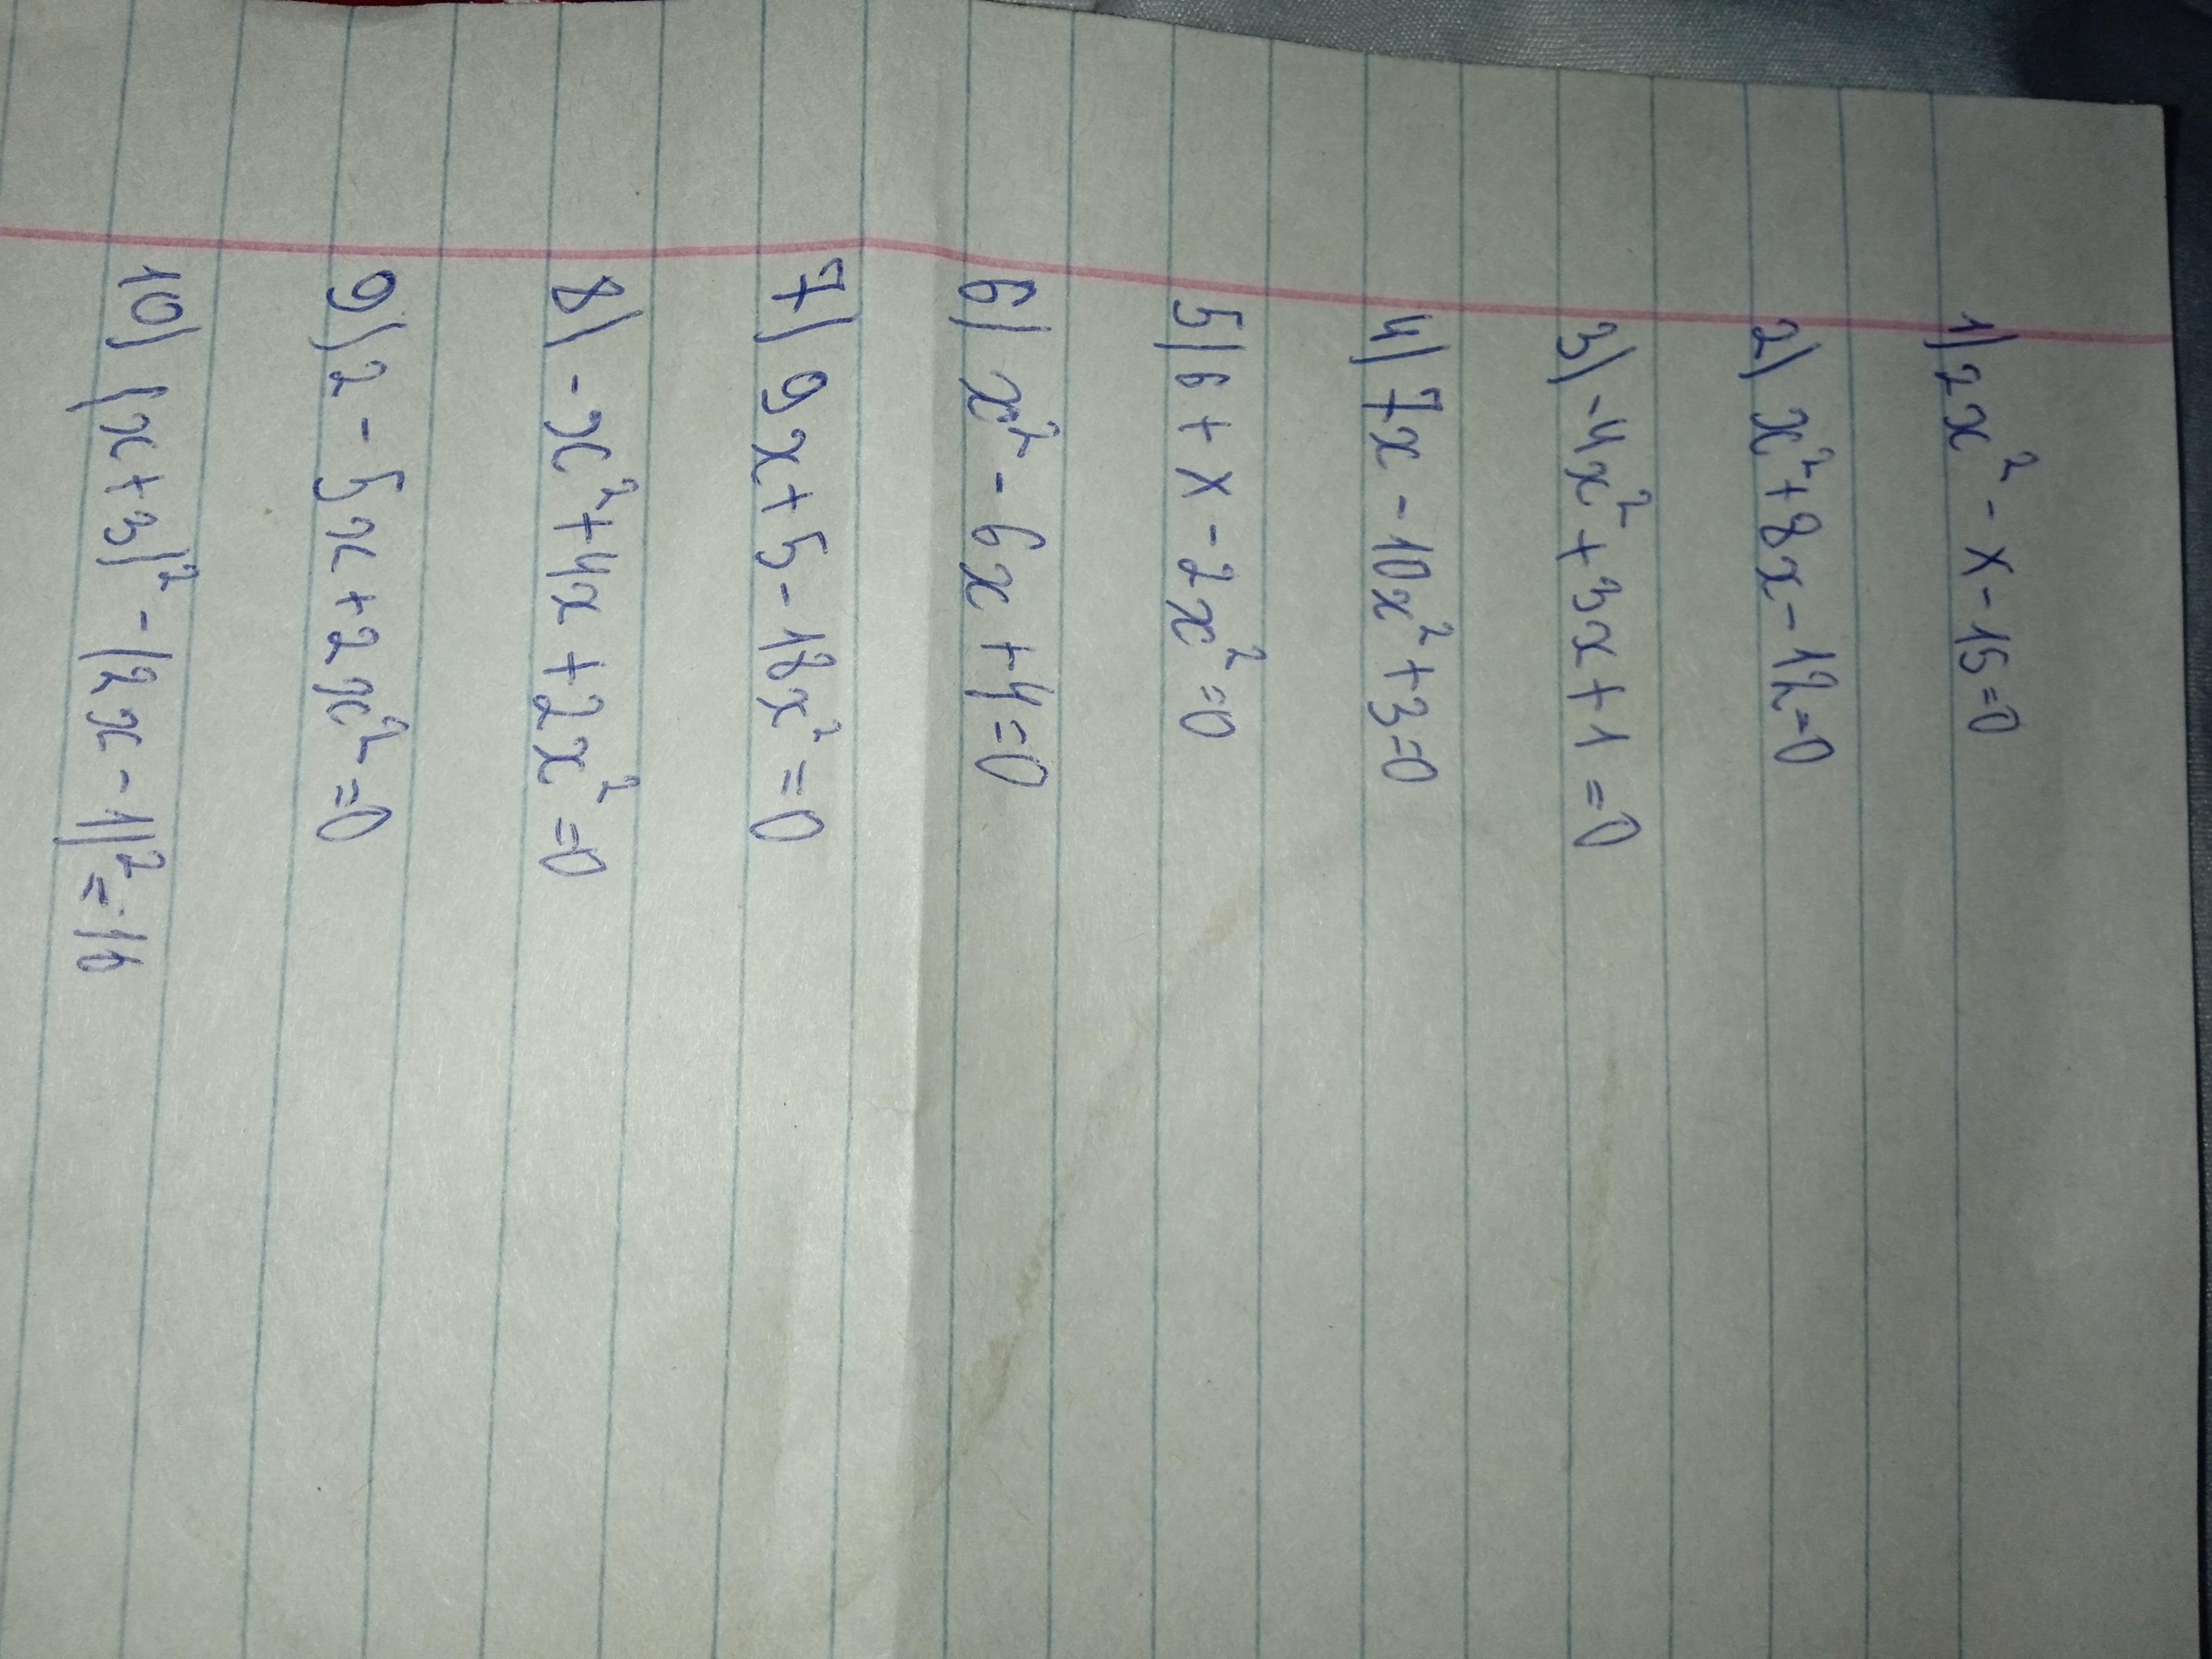 1) 2x² - x - 15 = 0
2) x² + 8x - 12 = 0
3) -4x² + 3x + 1 = 0
4) 7x - 10x² + 3 = 0
5) 6 + x - 2x² = 0
6) x² - 6x + 4 = 0
7) 9x + 5 - 18x² = 0
8) -x² + 4x + 2x² = 0
9) 2 - 5x + 2x² = 0
10) (x + 3)² - (2x - 1)² = 16